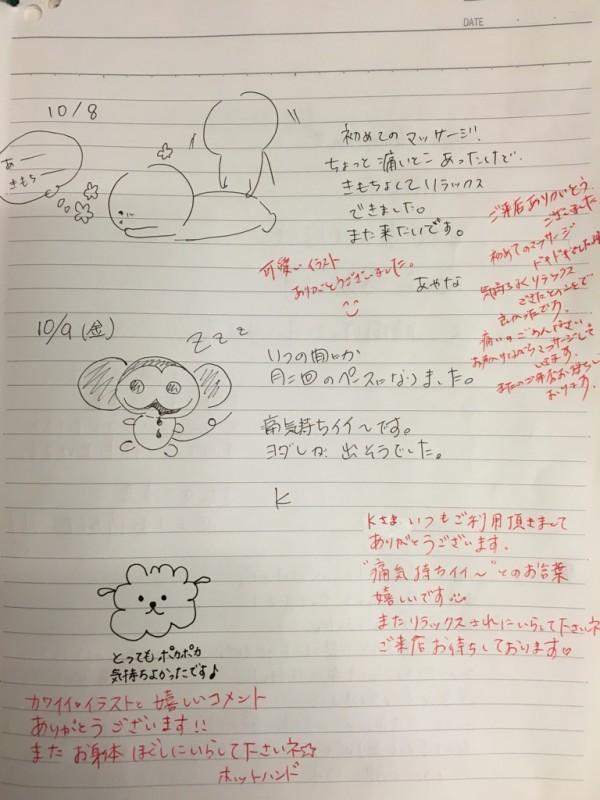 DATE
10/8
あー
きもちー
初めてのマッサージ!
ちょっと痛いとこあったけど、
きもちよくてリラックス
できました。
また来たいです。
あやな
可愛いイラスト
ありがとうございました。
ご来店ありがとう
ございました
初めてのマッサージ
ドキドキされた
気持ちよくリラックス
できたとのことで
良かったです。
痛いの ごめんなさい
マッサージして
いきます。
またのご来店お待ちして
おります。
10/9 (金)
Z z z
いつの間にか
月二回のペースになりました。
痛気持ちイイ~です。
ヨダレが出そうでした。
K
Kさま いつもご利用頂きまして
ありがとうございます。
"痛気持ちイイ~"とのお言葉
嬉しいです
またリラックスされにいらして下さいネ
ご来店お待ちしております♡
とってもポカポカ
気持ちよかったです♪
カワイイイラストと嬉しいコメント
ありがとうございます!!
またお身体ほぐしにいらして下さいネ☆
ホットハンド